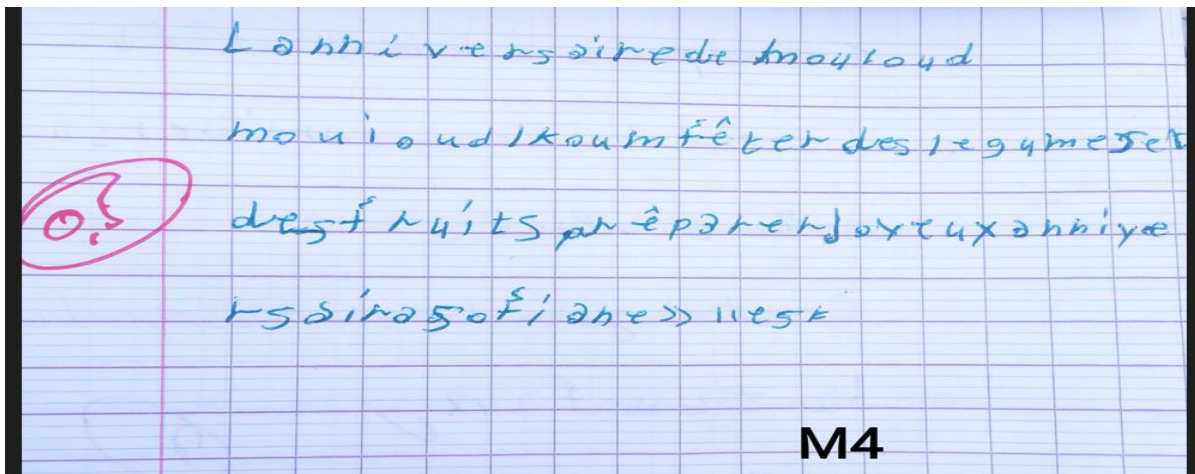 Lanniversairede mouloud
mouloud lkoum fêter des legumeset
desfruits prêparerjoyeuxannive
rsairasofiane>> ilest
0,5
M4